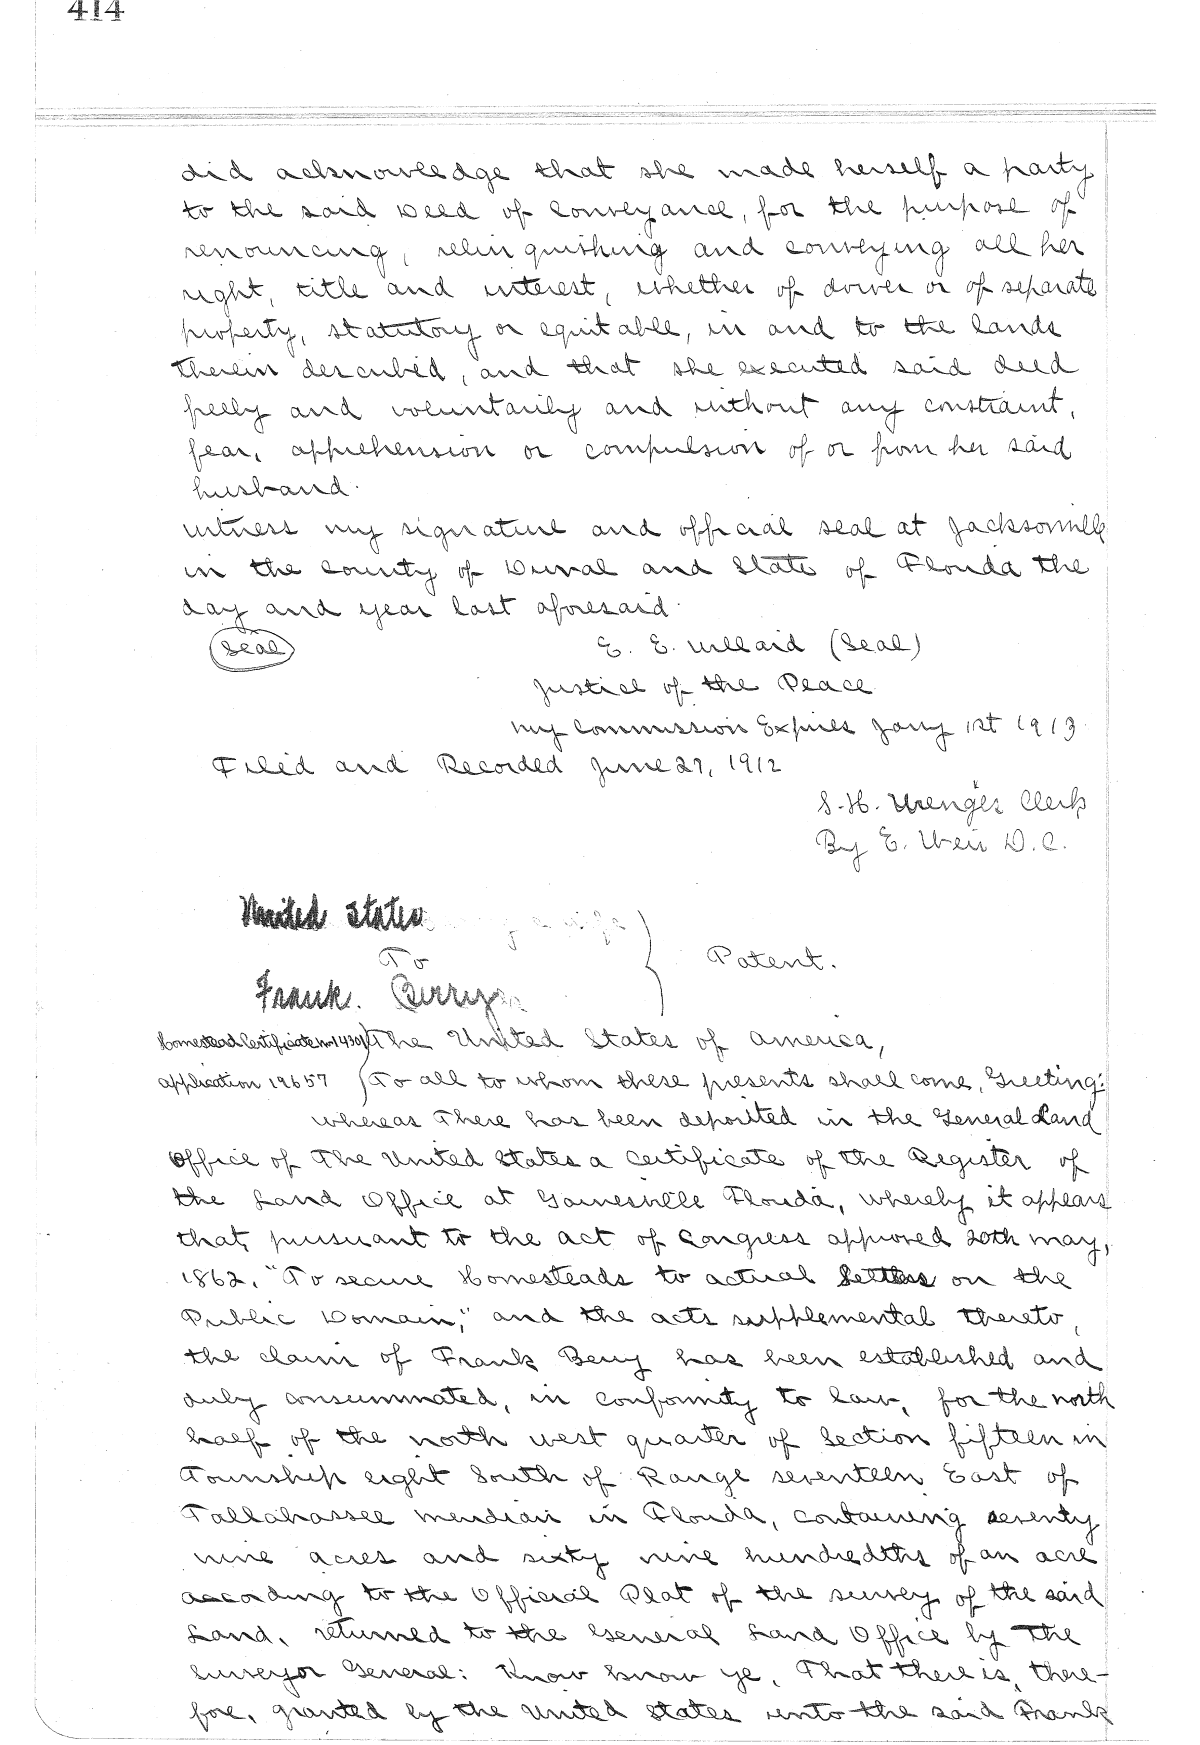 414
did acknowledge that she made herself a party
to the said Deed of Conveyance, for the purpose of
renouncing, relinquishing and conveying all her
right, title and interest, whether of dower or of separate
property, statutory or equitable, in and to the lands
therein described, and that she executed said deed
freely and voluntarily and without any constraint,
fear, apprehension or compulsion of or from her said
husband.
witness my signature and official seal at Jacksonville
in the County of Duval and State of Florida the
day and year last aforesaid.
Seal
E. E. Willard (Seal)
Justice of the Peace
my Commission Expires Jany 1st 1913.
Filed and Recorded June 27, 1912
S. H. Wienges Clerk
By E. Weir D.C.
United States
To
Patent.
Frank Berry
Homestead Certificate no 14301
The United States of America,
application 19657
To all to whom these presents shall come, Greeting:
whereas There has been deposited in the General Land
Office of The United States a Certificate of the Register of
the Land Office at Gainesville Florida, whereby it appears
that, pursuant to the act of Congress approved 20th may,
1862, "To secure Homesteads to actual Settlers on the
Public Domain," and the acts supplemental thereto,
the claim of Frank Berry has been established and
duly consummated, in conformity to law, for the north
half of the north west quarter of Section fifteen in
Township eight South of Range seventeen East of
Tallahassee meridian in Florida, containing seventy
nine acres and sixty nine hundredths of an acre
according to the Official Plat of the survey of the said
Land, returned to the General Land Office by The
Surveyor General: Know know ye, That there is, there-
fore, granted by the United States unto the said Frank